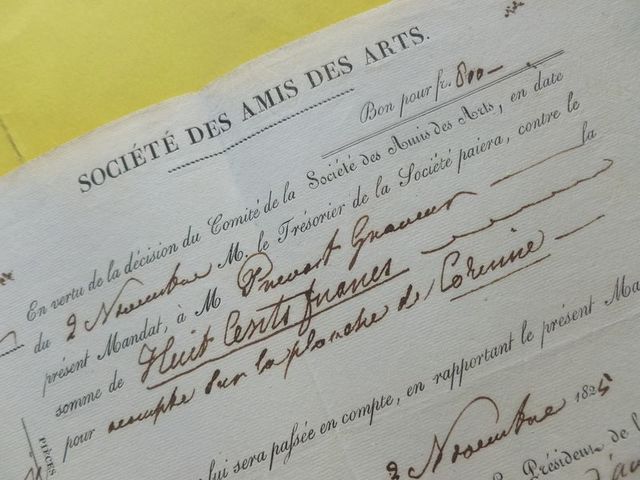 SOCIÉTÉ DES AMIS DES ARTS.
Bon pour fr. 800—
En vertu de la décision du Comité de la Société des Amis des Arts, en date
du 2 Novembre M. le Trésorier de la Société paiera, contre le
présent Mandat, à M Prevost Graveur la
somme de Huit Cents francs
pour acompte sur la planche de Corinne —
lui sera passée en compte, en rapportant le présent Ma
PIÈCES
2 Novembre 1825
Le Président de l